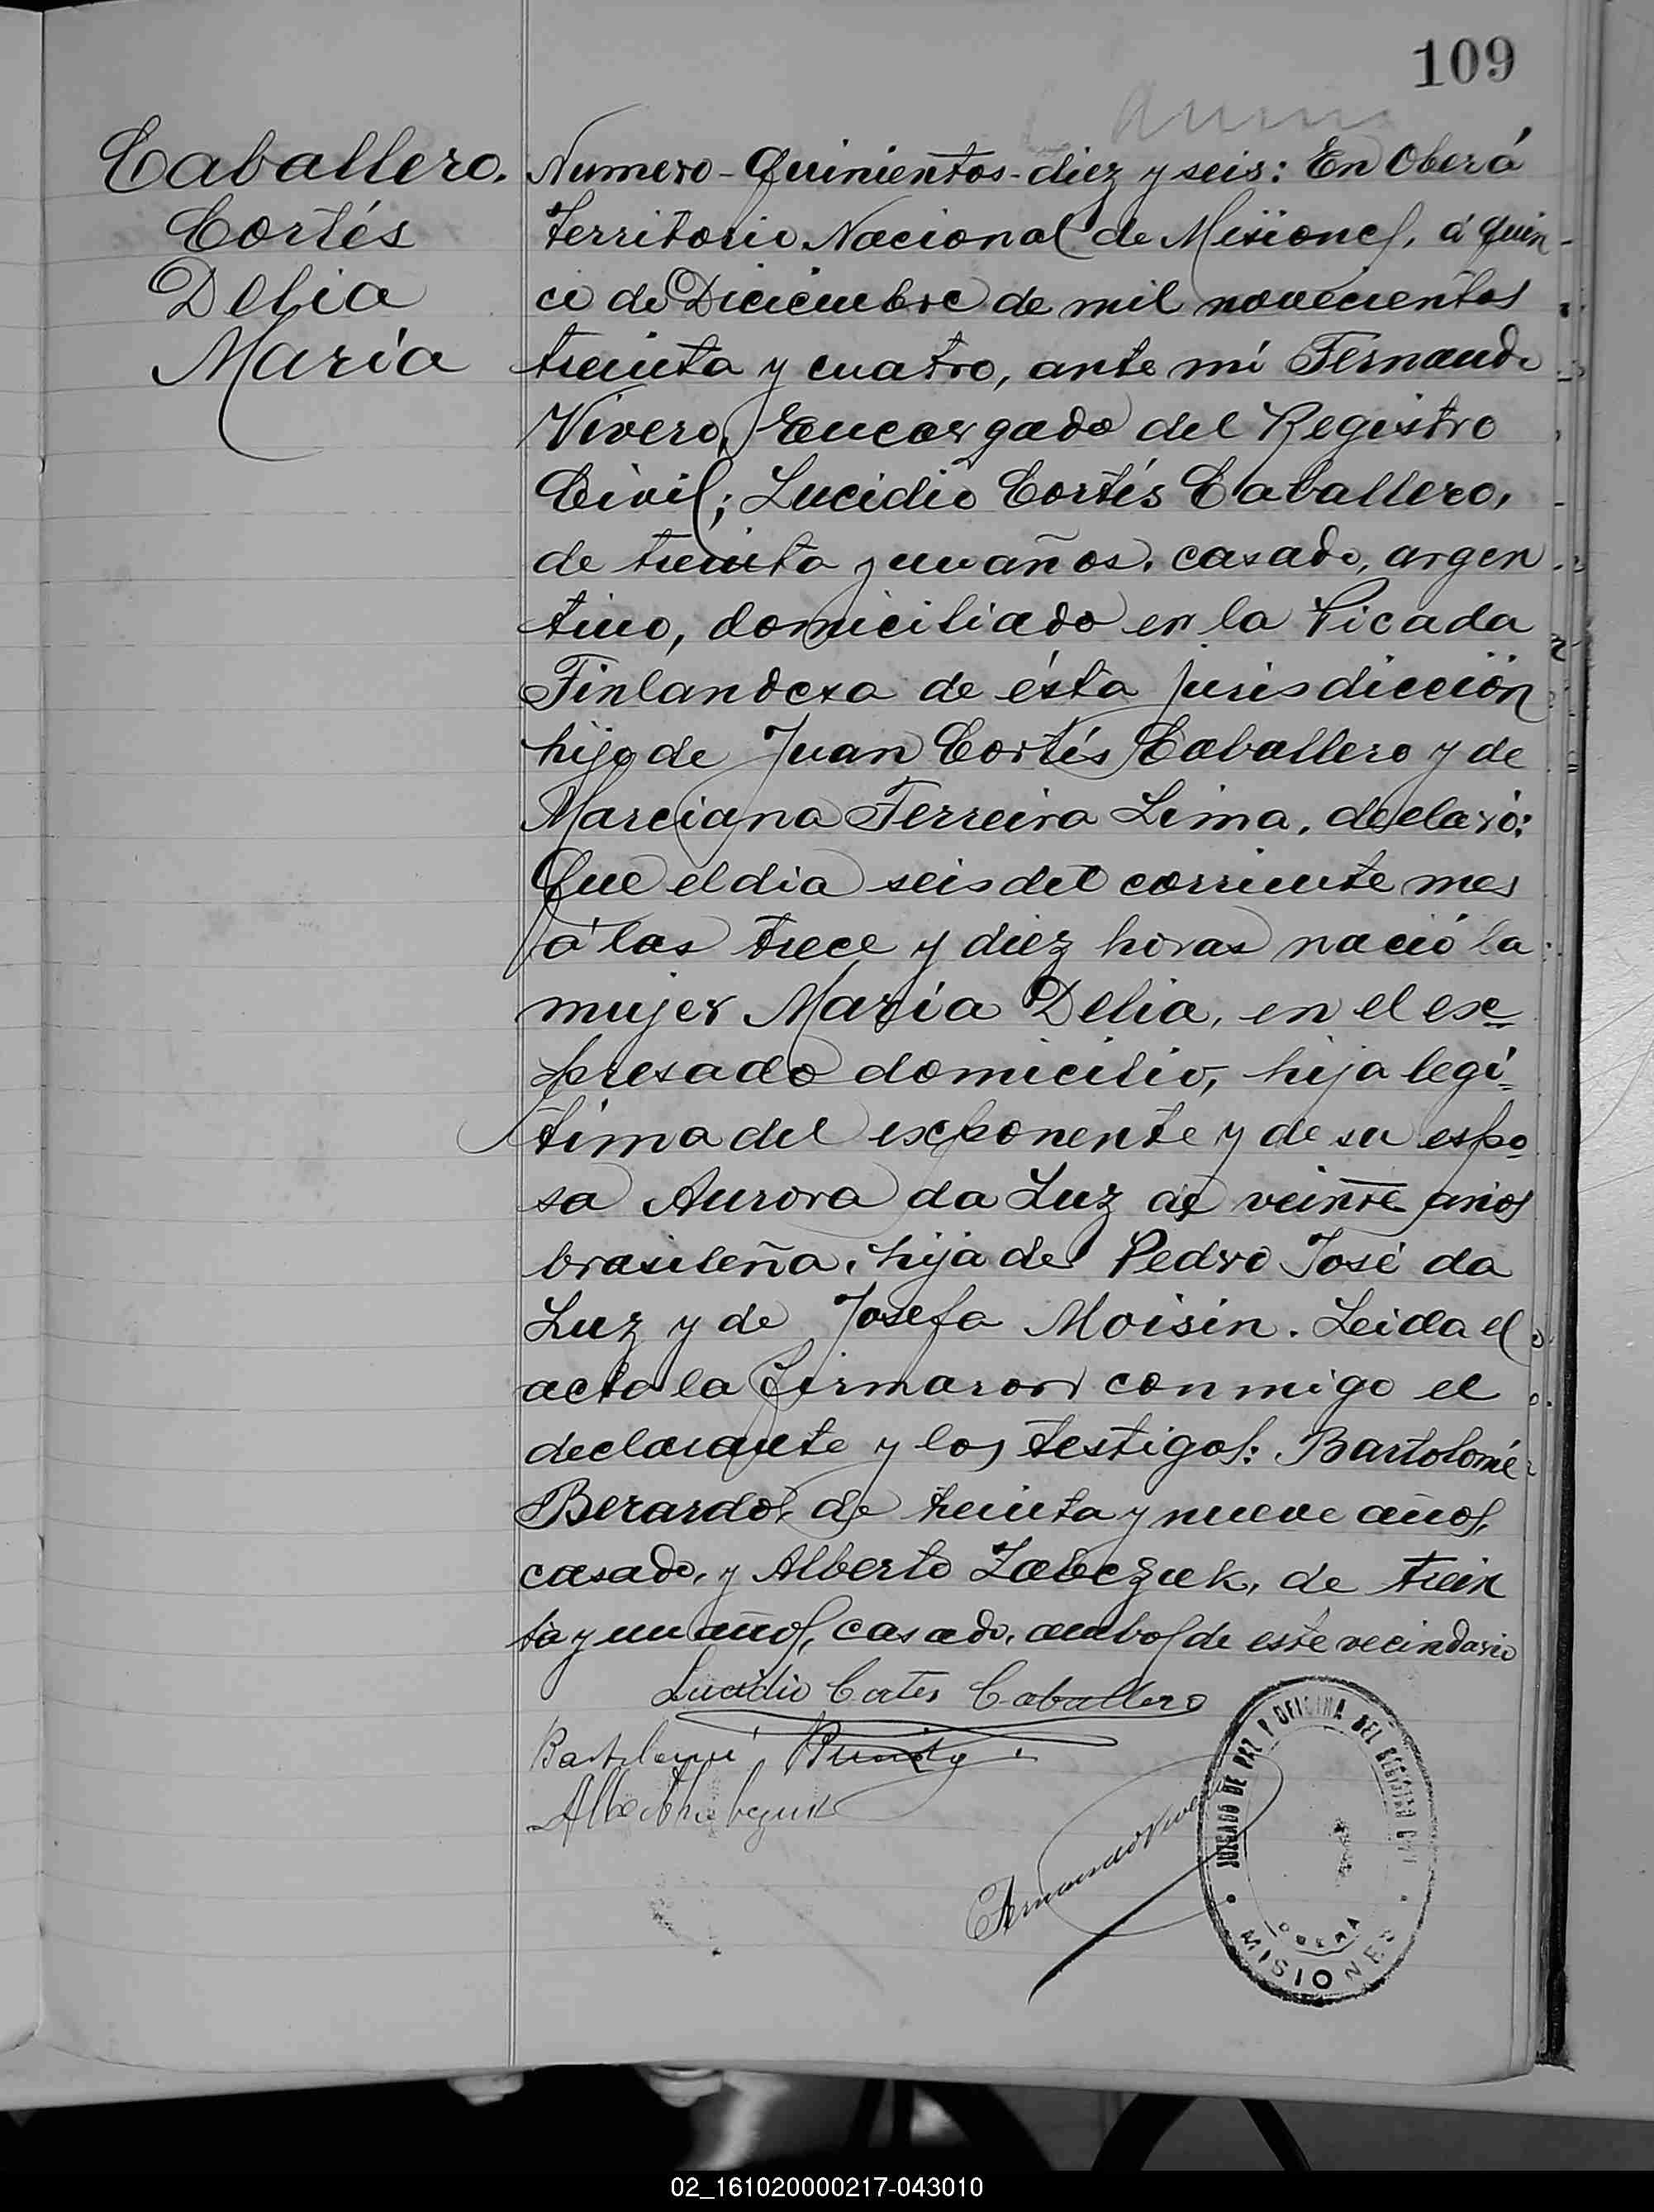 109
Caballero.
Cortés
Delia
María
Numero-Quinientos-diez y seis: En Oberá
Territorio Nacional de Misiones, á quin-
ce de Diciembre de mil novecientos
treinta y cuatro, ante mí Fernando
Vivero, Encargado del Registro
Civil; Lucidio Cortés Caballero,
de treinta y un años, casado, argen
tino, domiciliado en la Picada
Finlandesa de ésta jurisdicción
hijo de Juan Cortés Caballero y de
Marciana Ferreira Lima, declaró:
Que el dia seis del corriente mes
á las trece y diez horas nació la
mujer María Delia, en el ex-
presado domicilio, hija legí-
tima del exponente y de su espo-
sa Aurora da Luz de veinte años
brasileña, hija de Pedro José da
Luz y de Josefa Moisin. Leida el
acta la firmaron conmigo el
declarante y los testigos: Bartolomé
Berardo, de treinta y nueve años,
casado, y Alberto Zabczuk, de trein
ta y un años, casado, ambos de este vecindario
Lucidio Cortes Caballero
Bartolomé
Fernando Vivero
JUZGADO DE PAZ Y OFICINA DEL REGISTRO CIVIL
OBERA
MISIONES
02_161020000217-043010